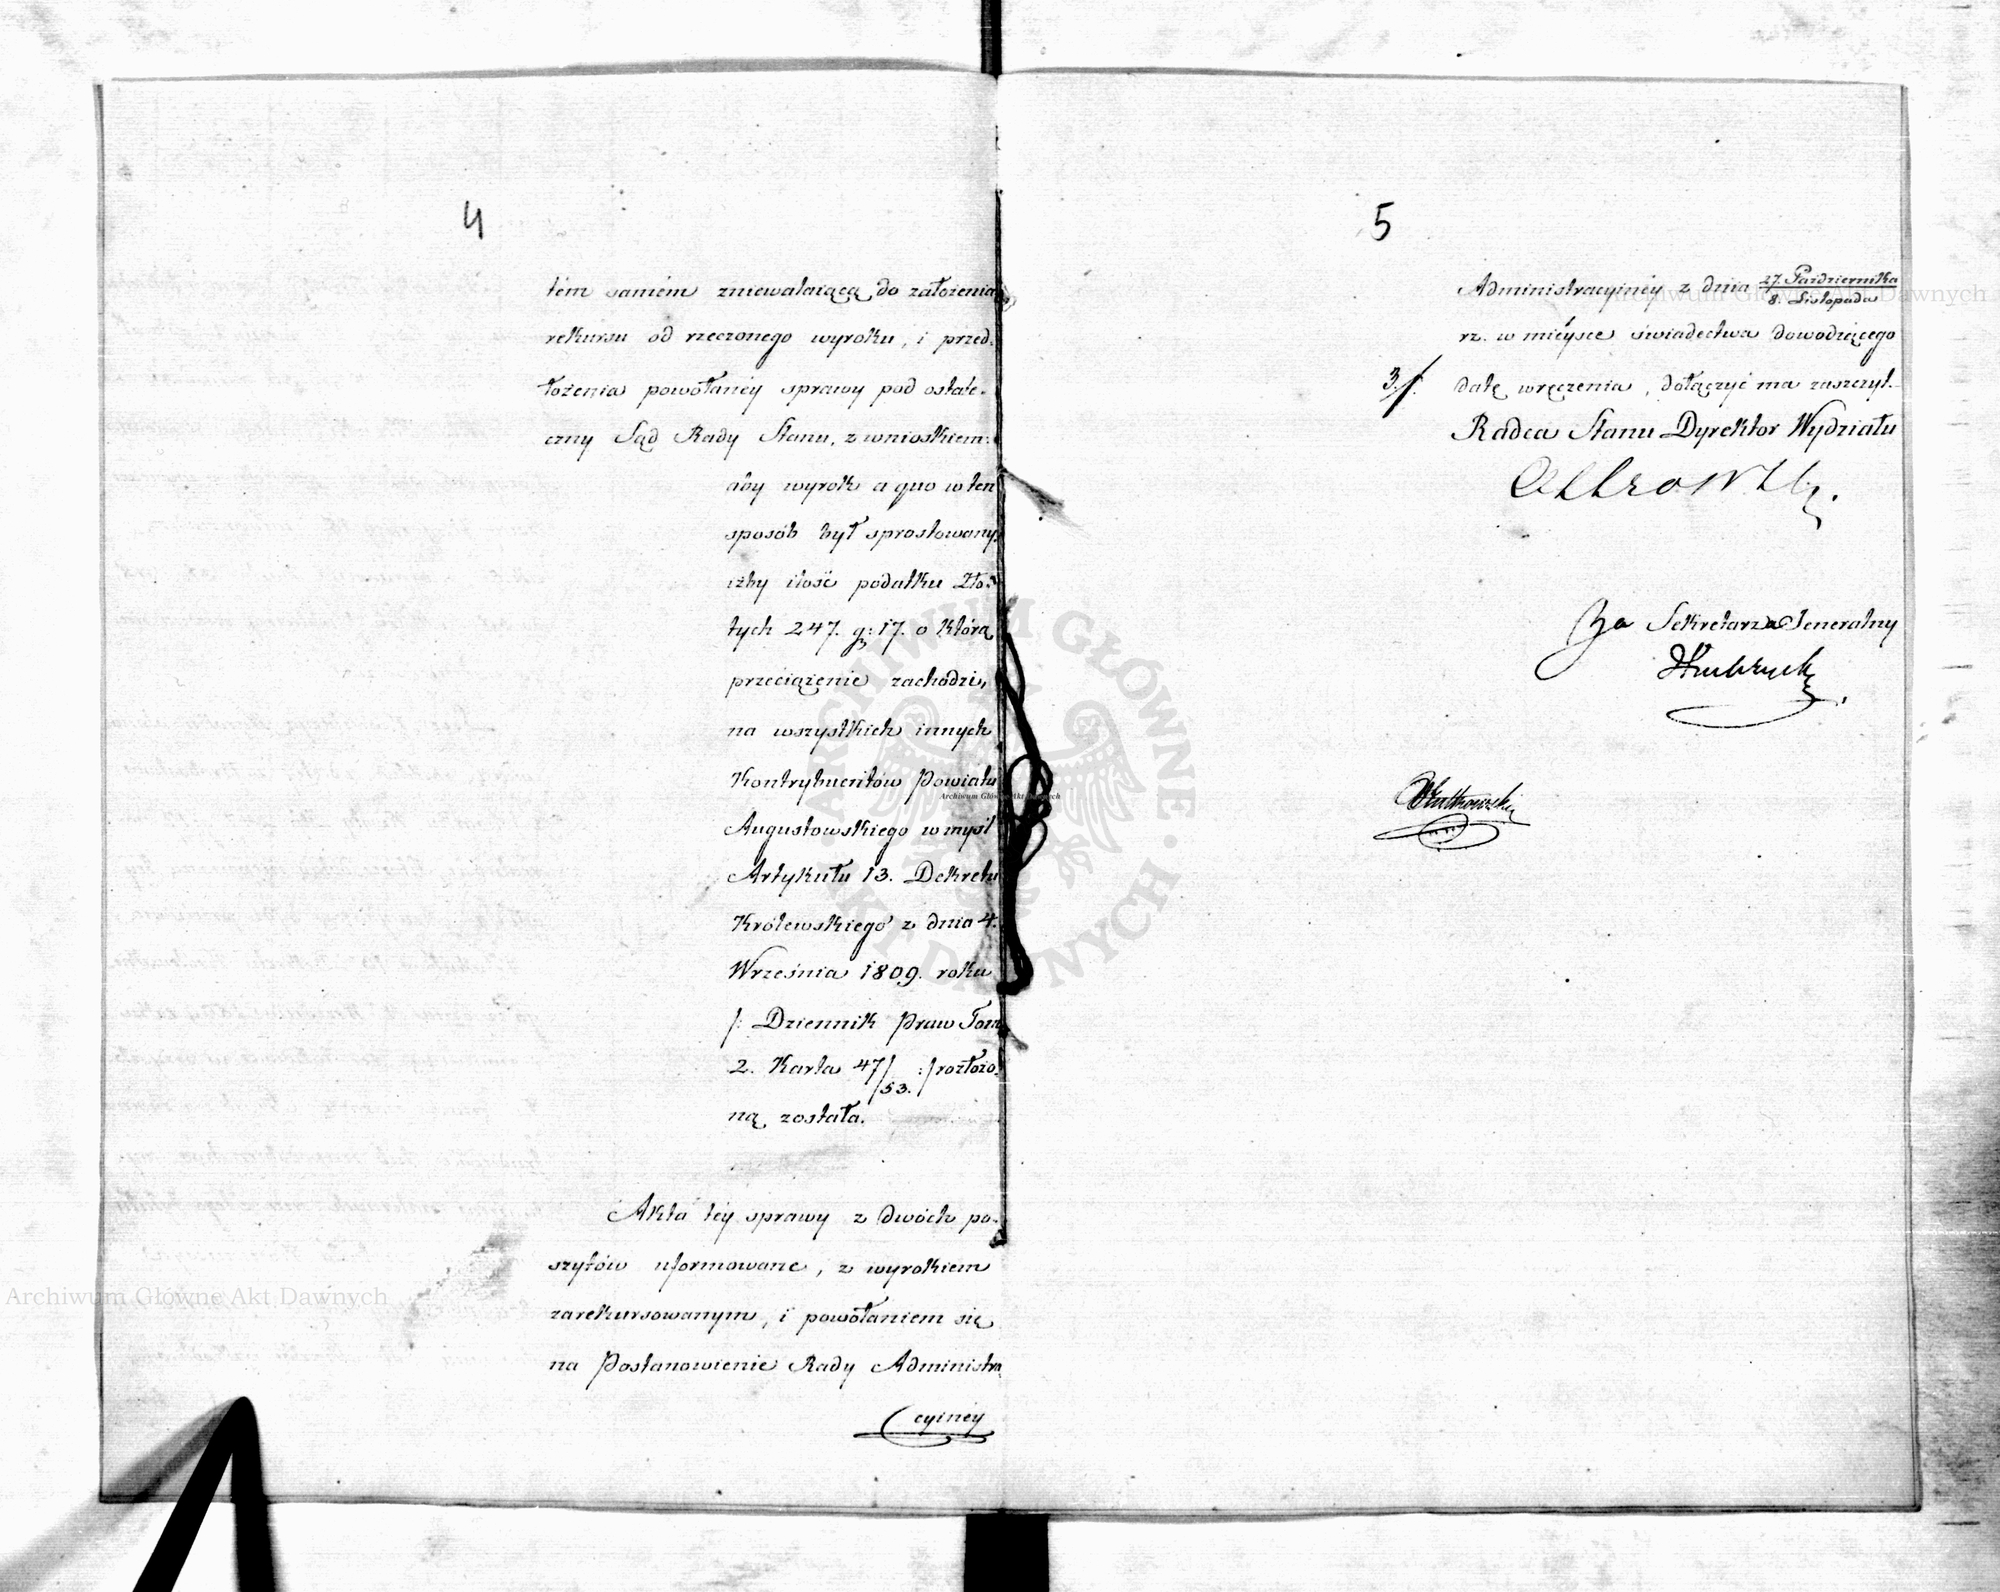 4
tém samém zniewalaiącą do założenia
rekursu od rzeczonego wyroku, i przed-
łożenia powołanéy sprawy pod ostate-
czny Sąd Rady Stanu, z wnioskiem:
aby wyrok a quo w ten
sposób był sprostowany
iżby ilość podatku Zło-
tych 247. gr: 17. o którą
przeciążenie zachodzi,
na wszystkich innych
Kontrybuentów Powiatu
Augustowskiego w myśl
Artykułu 13. Dekretu
Królewskiego z dnia 4.
Września 1809. roku
/: Dziennik Praw Tom
2. Karta 47/53. :/ rozłożo-
ną została.
Akta téy sprawy z dwóch po-
szytów uformowane, z wyrokiem
zarekursowanym, i powołaniem się
na Postanowienie Rady Administra
cyinéy
5
Administracyinéy z dnia 27. Października / 8. Listopada
rz. w mieysce świadectwa dowodzącego
3. datę wręczenia, dołączyć ma zaszczyt.
Radca Stanu Dyrektor Wydziału
Za Sekretarza Jeneralny
Archiwum Główne Akt Dawnych
Archiwum Główne Akt Dawnych
Archiwum Główne Akt Dawnych
ARCHIWUM GŁÓWNE AKT DAWNYCH